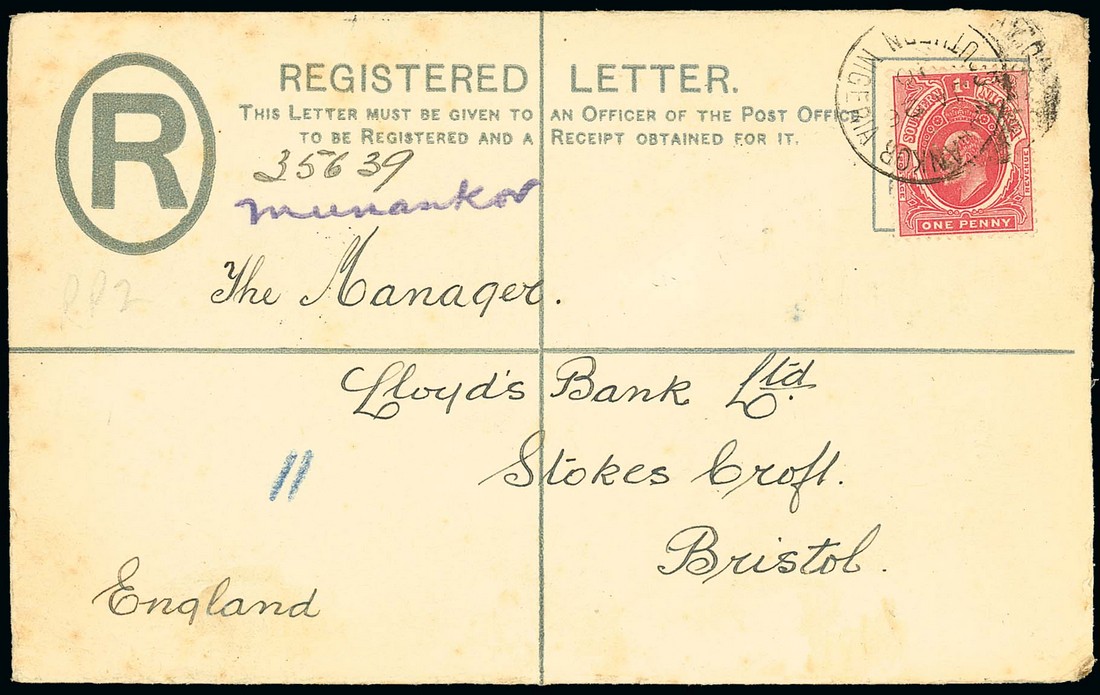 R
REGISTERED LETTER.
THIS LETTER MUST BE GIVEN TO AN OFFICER OF THE POST OFF
TO BE REGISTERED AND A RECEIPT OBTAINED FOR IT.
35639
Munankor
SOUTHERN NIGERIA
1d
ONE PENNY
REVENUE
The Manager.
RP2
Lloyd's Bank Ltd
11
Stokes Croft.
Bristol.
England